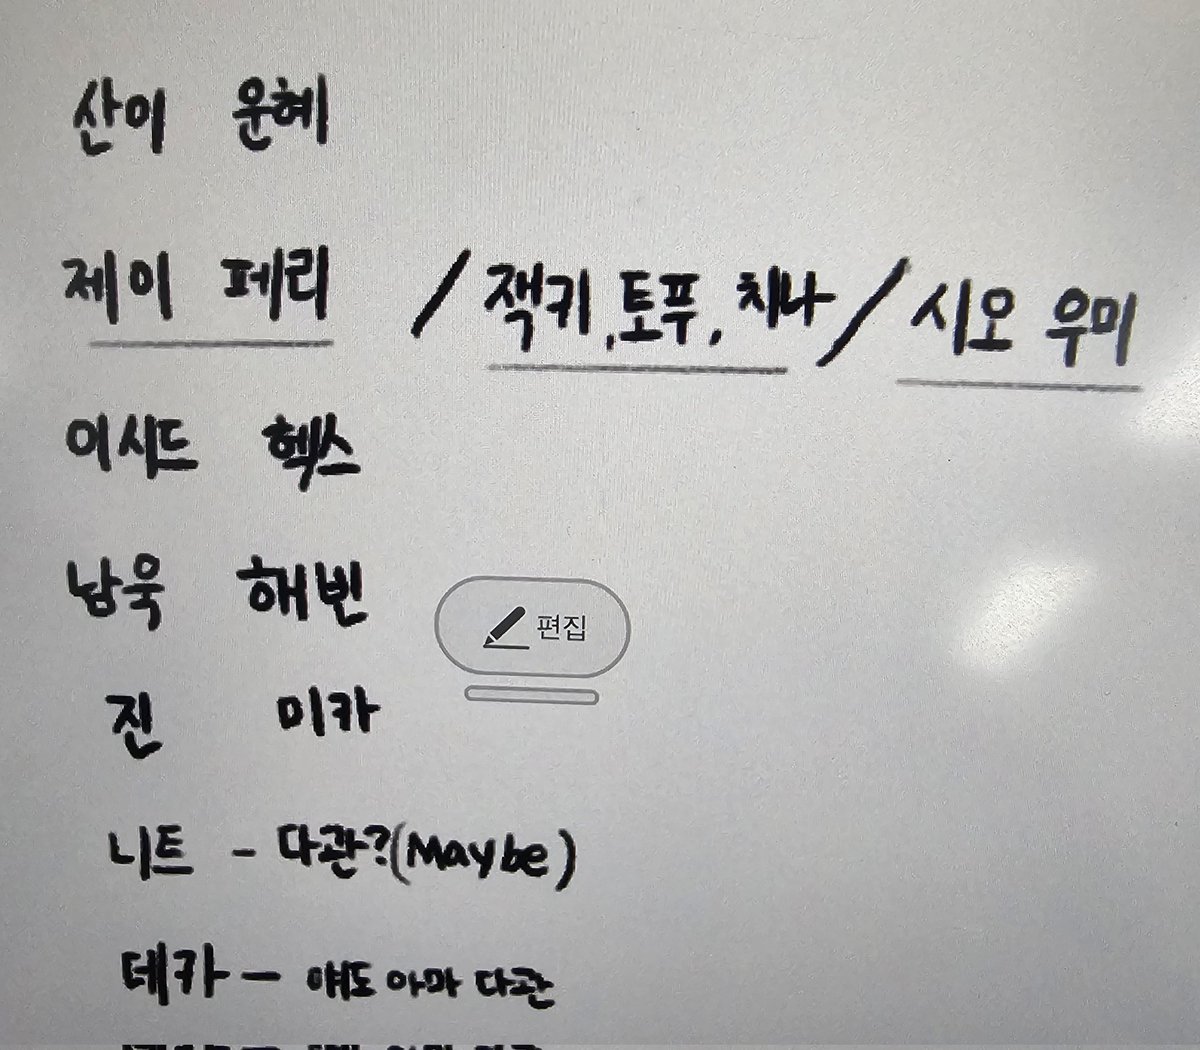 산이 운혜
제이 페리 / 잭키, 토푸, 치나 / 시오 우미
이시드 헥스
남욱 해빈
편집
진 미카
니트 - 다관?(Maybe)
데카 - 얘도 아마 다관